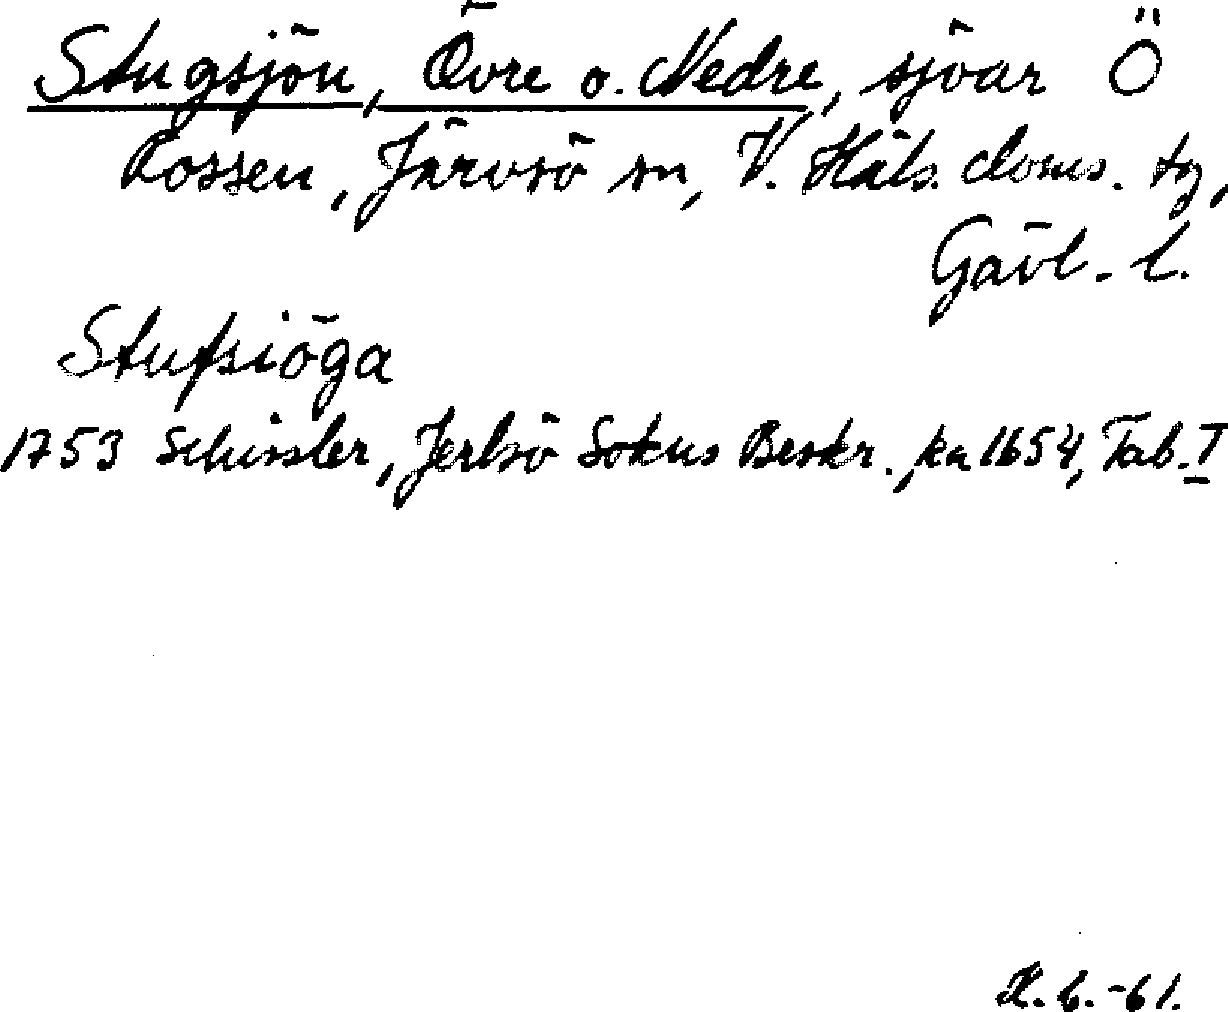 Stugsjön, Övre o. Nedre, sjöar Ö
Rossen, Järvsö sn, V. Häls. doms. tg,
Gävl. l.
Stufsiöga
1753 Schissler, Jerlsö Sokns Beskr., ka 1654, Tab. I
-61.